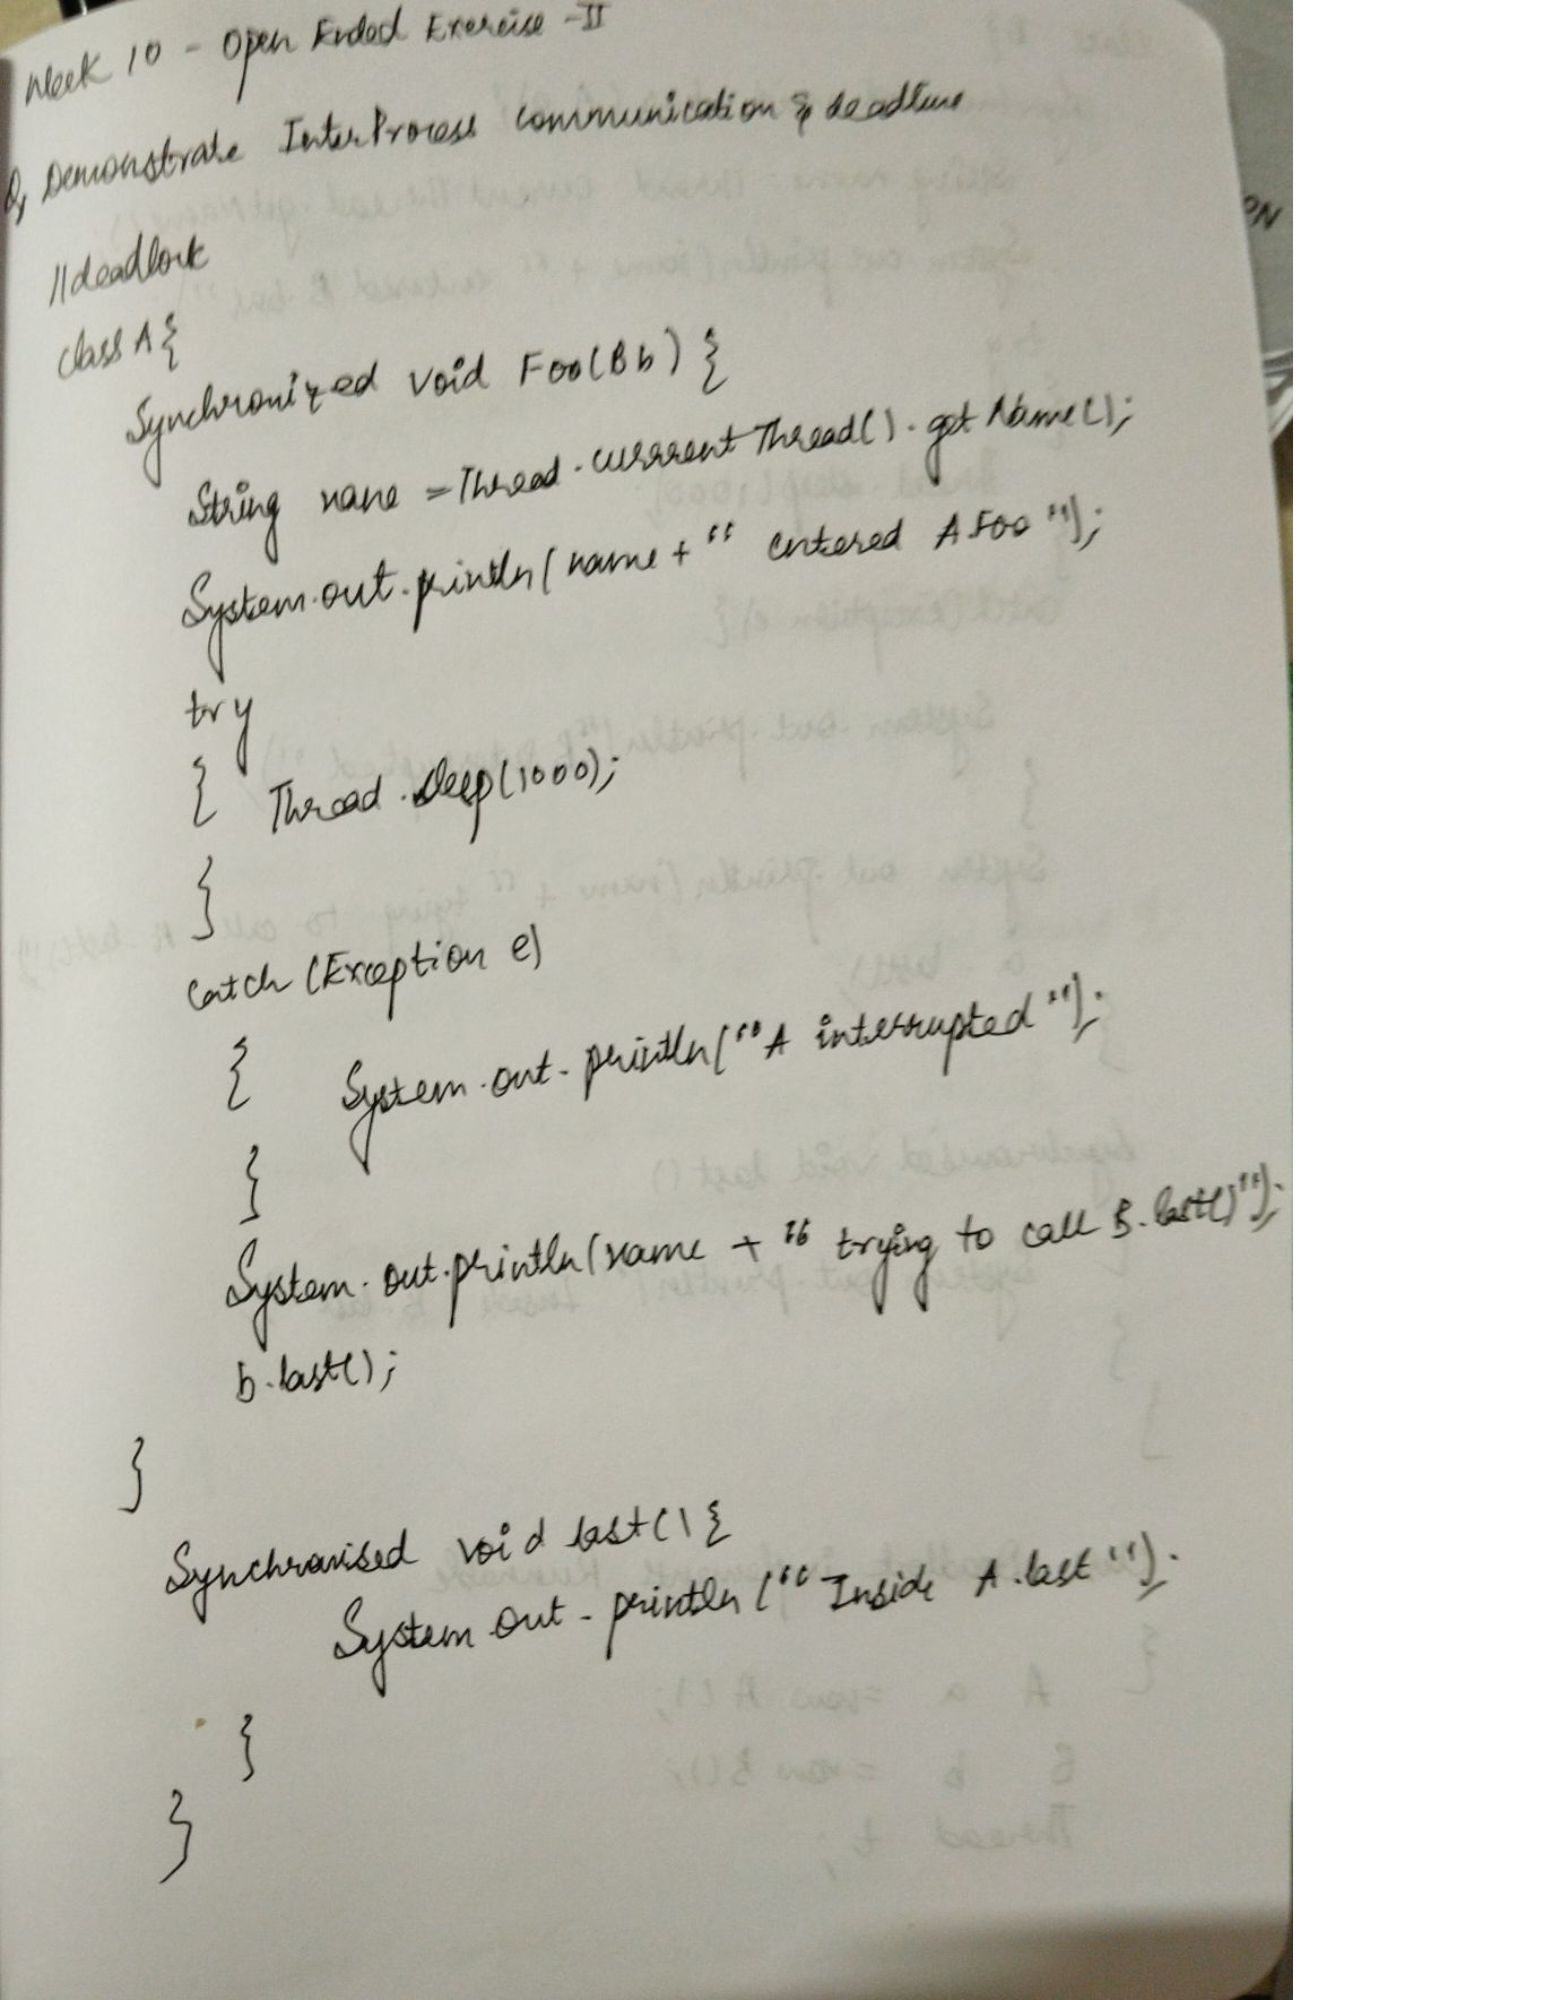 Week 10 - Open Ended Exercise -II
Q, Demonstrate InterProcess communication & deadline
//deadlock
class A {
Synchronized void Foo(B b) {
String name = Thread.currrent Thread().get Name();
System.out.println(name + " entered A.Foo");
try
{ Thread.sleep(1000);
}
catch (Exception e)
{ System.out.println("A interrupted");
}
System.out.println(name + " trying to call B.last()");
b.last();
}
Synchronised void last() {
System.out.println("Inside A.last");
}
}